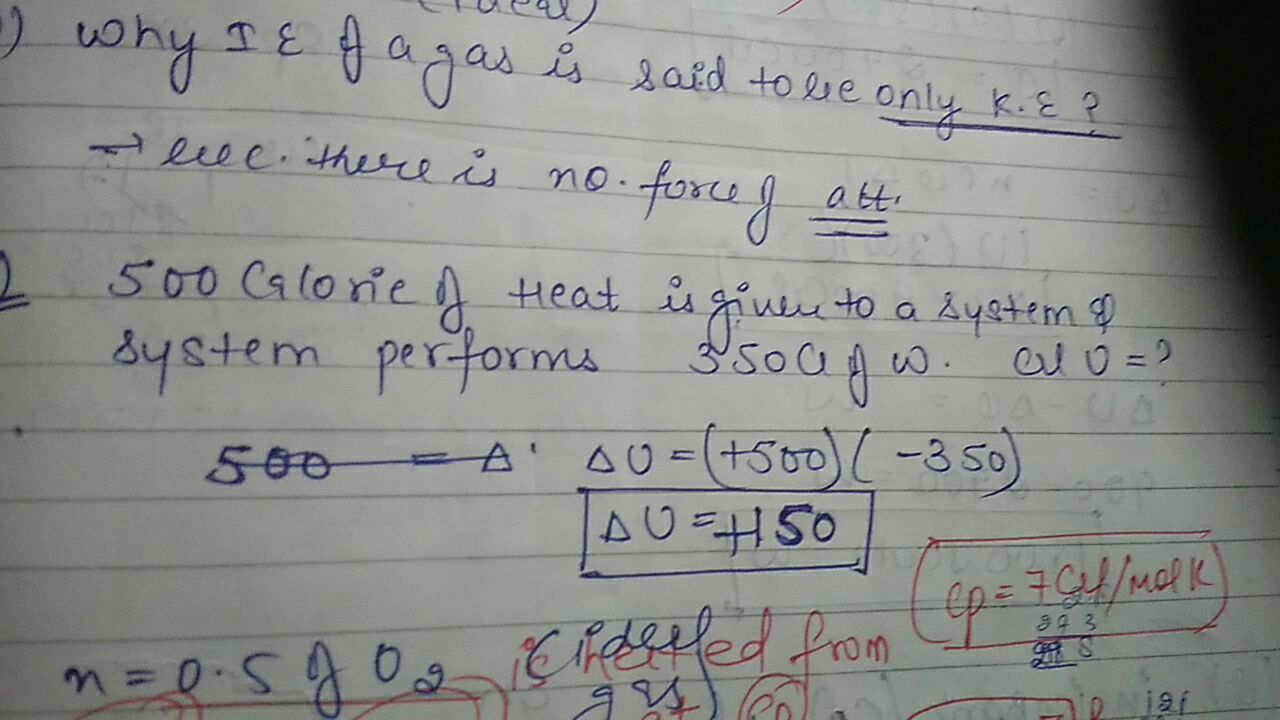 (Ideal)
) Why I E of a gas is said to be only K.E ?
→ bec. there is no. force of att.
2 500 Calorie of Heat is given to a system &
system performs 350 Cal of w. Cal U = ?
500 = Δ ΔU = (+500)(-350)
ΔU = +150
Cp = 7 Cal/mol K
273
n = 0.5 of O2 (ideal gas) is heated from